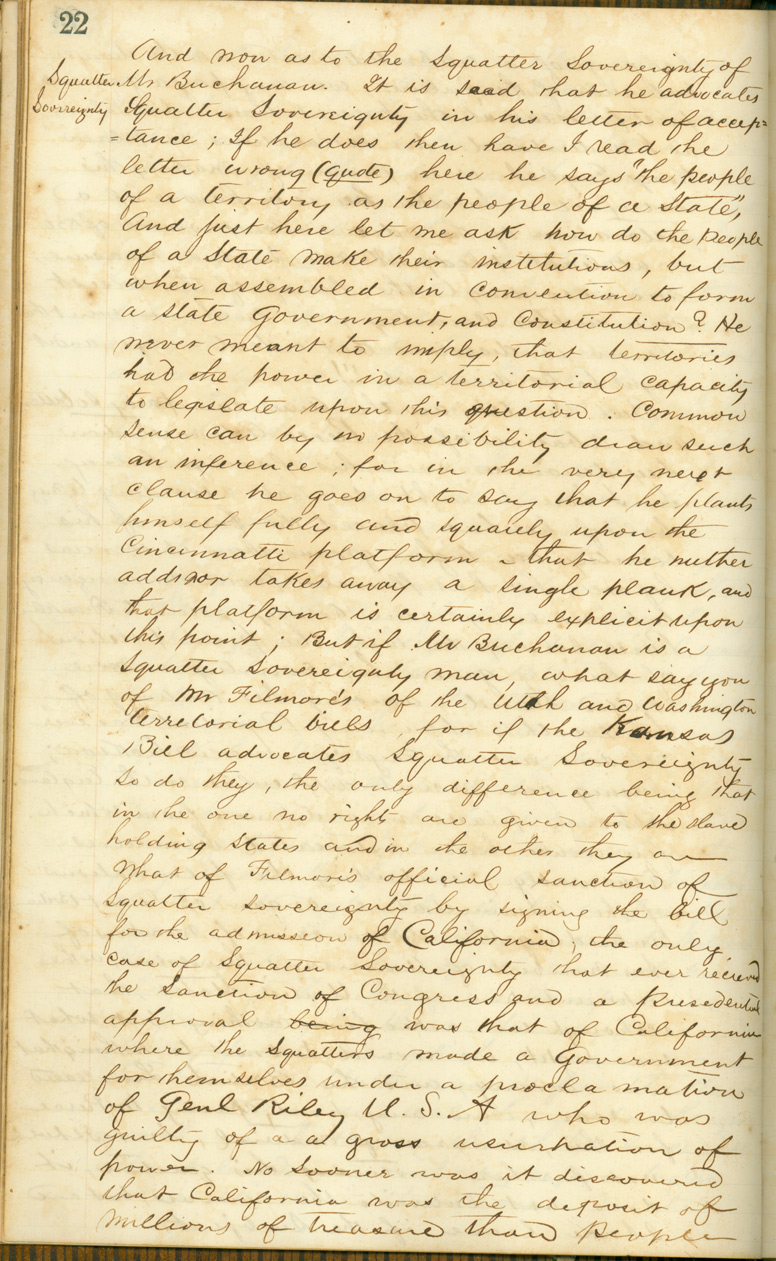 22
And now as to the Squatter Sovereignty of
Squatter
Sovereignty
Mr Buchanan. It is said that he advocates
Squatter Sovereignty in his letter of accep=
=tance; If he does then have I read the
letter wrong (quote) here he says "the people
of a territory as the people of a State",
And just here let me ask how do the people
of a State make their institutions, but
when assembled in Convention to form
a state Government, and Constitution? He
never meant to imply, that territories
had the power in a territorial capacity
to legislate upon this question. Common
sense can by no possibility draw such
an inference; for in the very next
clause he goes on to say that he plants
himself fully and squarely upon the
Cincinnatti platform – that he neither
adds nor takes away a single plank, and
that platform is certainly explicit upon
this point; But if Mr Buchanan is a
Squatter Sovereignty man, what say you
of Mr Filmore's of the Utah and Washington
territorial bills, for if the Kansas
Bill advocates Squatter Sovereignty
so do they, the only difference being that
in the one no rights are given to the slave
holding States and in the other they are
What of Filmore's official sanction of
Squatter Sovereignty by signing the bill
for the admission of California, the only
case of Squatter Sovereignty that ever recieved
the Sanction of Congress and a presedential
approval being was that of California
where the Squatters made a Government
for themselves under a proclamation
of Genl Riley U.S.A who was
guilty of a a gross usurpation of
power. No sooner was it discovered
that California was the deposit of
millions of treasure than people